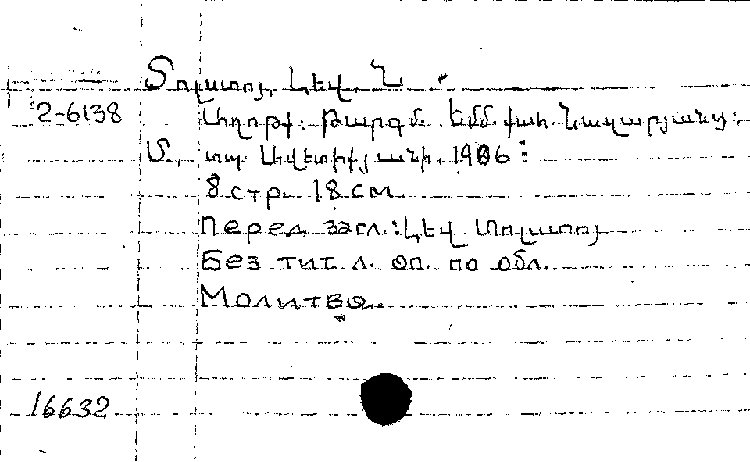 Տոլստոյ, Լեվ. Ն.
2-6138 Աղոթք: Թարգմ. Եմմ. քահ. Նազարյանց:
Մ., տպ. Ավետիքյանի. 1906:
8 стр. 18 см.
Перед загл.: Լեվ Տոլստոյ
Без тит. л. Оп. по обл.
Молитва.
16632